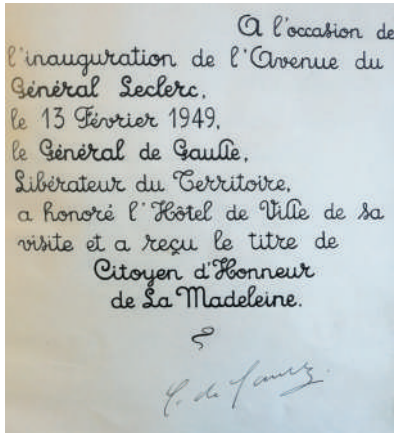 A l'occasion de
l'inauguration de l'Avenue du
Général Leclerc,
le 13 Février 1949,
le Général de Gaulle,
Libérateur du Territoire,
a honoré l'Hôtel de Ville de sa
visite et a reçu le titre de
Citoyen d'Honneur
de La Madeleine.
C. de Gaulle